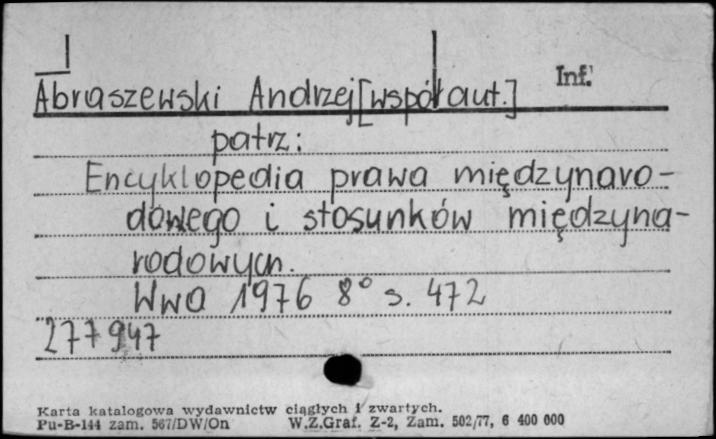 Abraszewski Andrzej [współaut.] Inf.
patrz:
Encyklopedia prawa międzynaro-
dowego i stosunków międzyna-
rodowych.
Wwa 1976 8° s. 472
277947
Karta katalogowa wydawnictw ciągłych i zwartych.
Pu-B-144 zam. 567/DW/On W.Z.Graf. Z-2, Zam. 502/77, 6 400 000